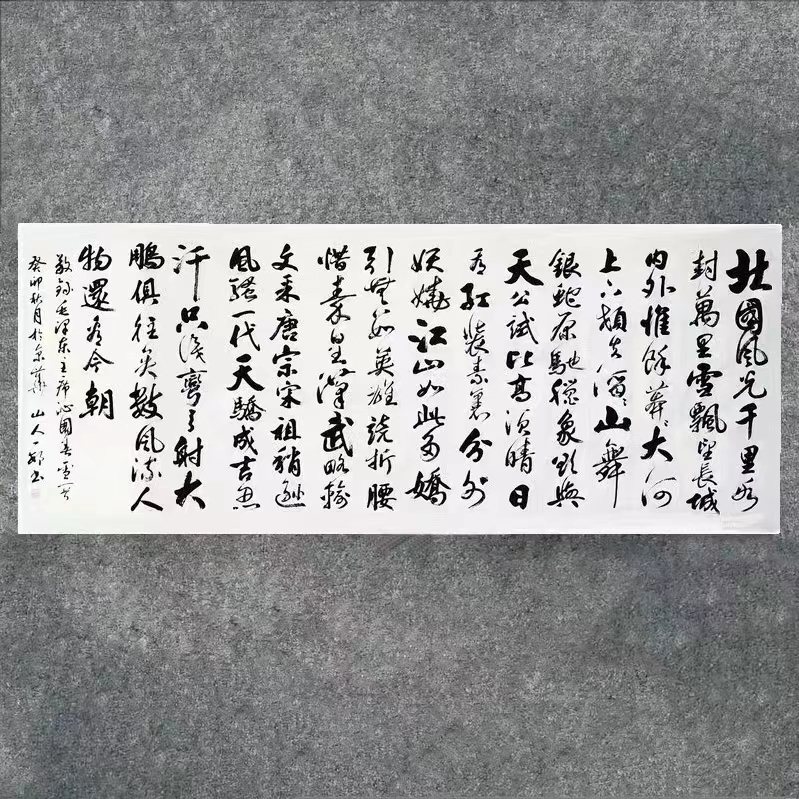 北國風光千里冰
封萬里雪飄望長城
内外惟餘莽莽大河
上下頓失滔滔山舞
銀蛇原馳臘象欲與
天公試比高須晴日
看紅裝素裹分外
妖嬈江山如此多嬌
引無數英雄競折腰
惜秦皇漢武略輸
文采唐宗宋祖稍遜
風騷一代天驕成吉思
汗只識彎弓射大
鵰俱往矣數風流人
物還看今朝
敬錄毛澤東主席沁園春雪
癸卯秋月於京華山人一書